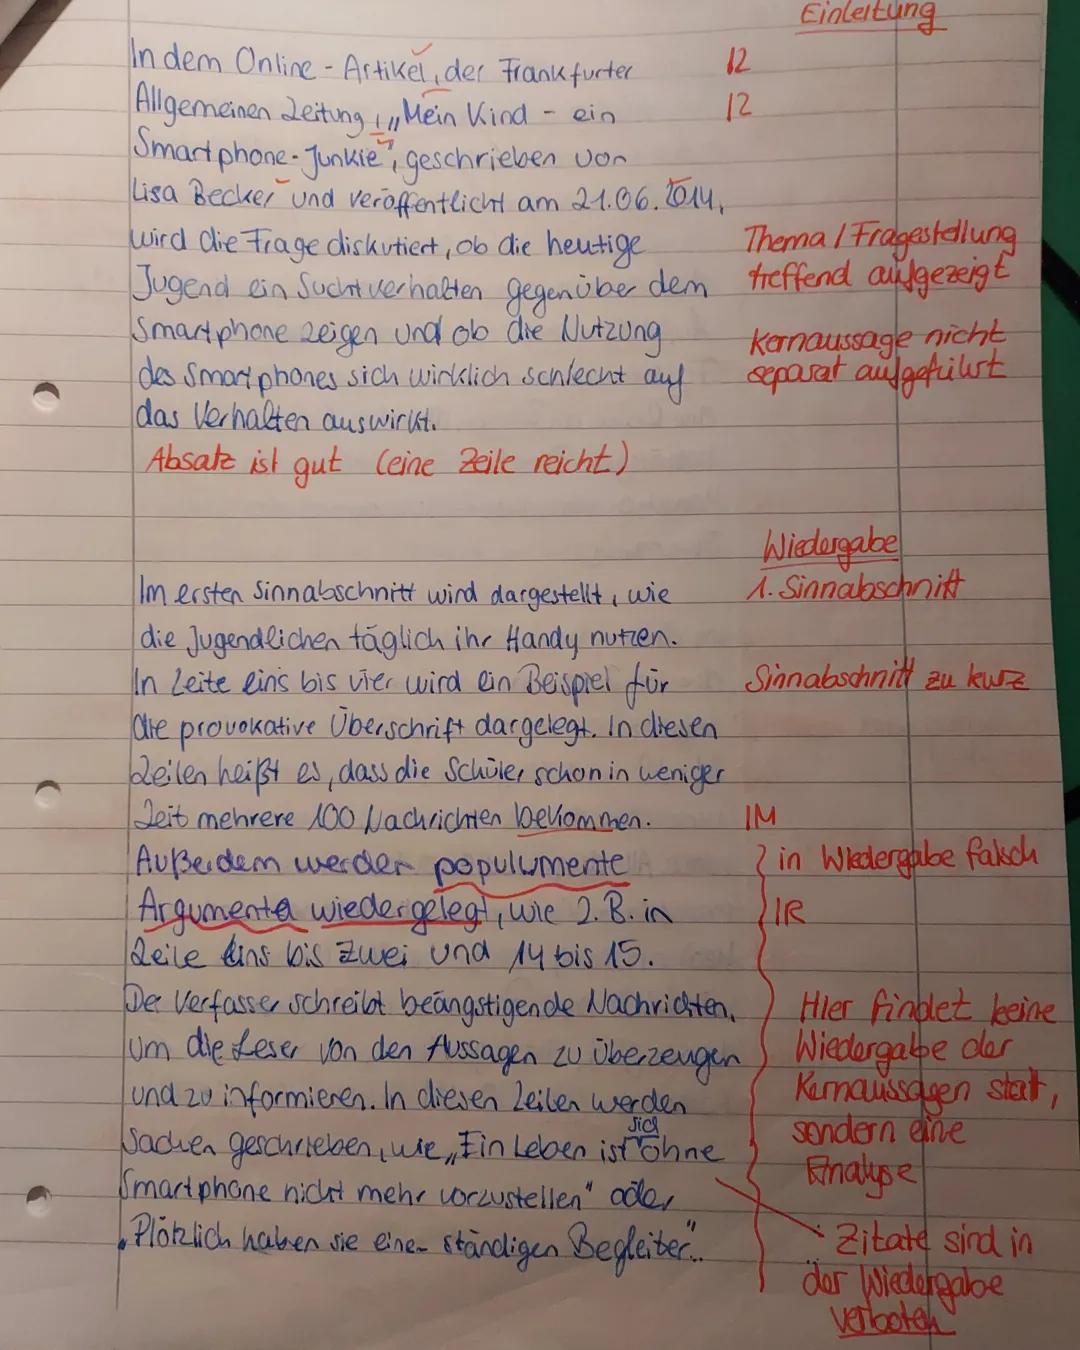 Einleitung
In dem Online-Artikel, der Frankfurter
12
Allgemeinen Zeitung, „Mein Kind - ein
12
Smartphone-Junkie", geschrieben von
Lisa Becker und veröffentlicht am 21.06.2014,
wird die Frage diskutiert, ob die heutige
Thema / Fragestellung
Jugend ein Suchtverhalten gegenüber dem
treffend aufgezeigt
Smartphone zeigen und ob die Nutzung
Kernaussage nicht
des Smartphones sich wirklich schlecht auf
separat aufgeführt
das Verhalten auswirkt.
Absatz ist gut (eine Zeile reicht)
Wiedergabe
Im ersten Sinnabschnitt wird dargestellt, wie
1. Sinnabschnitt
die Jugendlichen täglich ihr Handy nutzen.
In Zeile eins bis vier wird ein Beispiel für
Sinnabschnitt zu kurz
die provokative Überschrift dargelegt. In diesen
Zeilen heißt es, dass die Schüler schon in weniger
Zeit mehrere 100 Nachrichten bekommen.
IM
Außerdem werden populumente
? in Wiedergabe falsch
Argumente wiedergelegt, wie z.B. in
IR
Zeile eins bis zwei und 14 bis 15.
Der Verfasser schreibt beängstigende Nachrichten,
Hier findet keine
um die Leser von den Aussagen zu überzeugen
Wiedergabe der
und zu informieren. In diesen Zeilen werden
Kernaussagen statt,
sich
Sachen geschrieben, wie „Ein Leben ist ohne
sondern eine
Smartphone nicht mehr vorzustellen" oder
Analyse
„Plötzlich haben sie einen ständigen Begleiter"..
Zitate sind in
der Wiedergabe
verboten